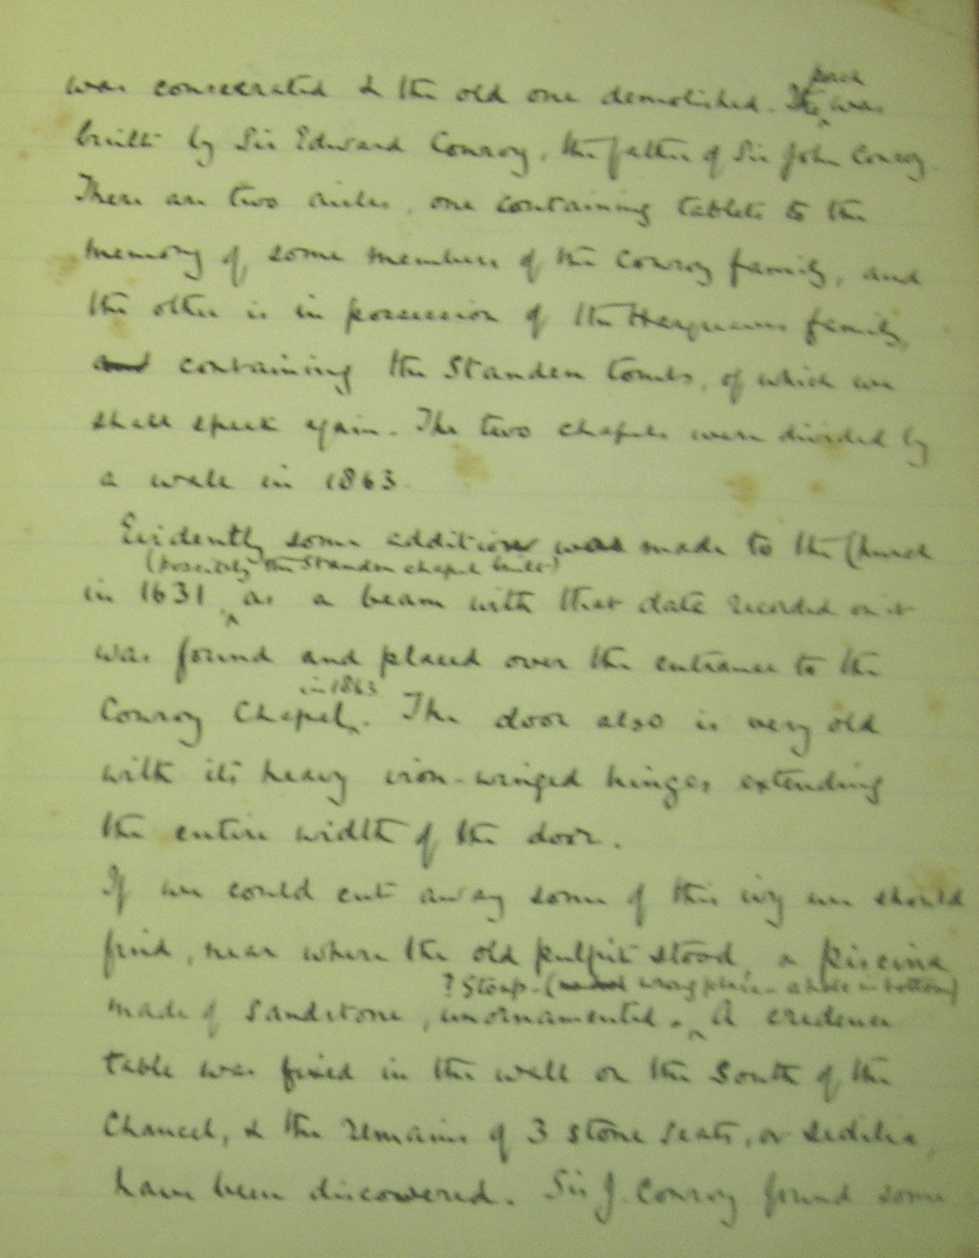 was consecrated & the old one demolished. The ^porch was
built by Sir Edward Conroy, the father of Sir John Conroy.
There are two aisles, one containing tablets to the
memory of some members of the Conroy family, and
the other is in possession of the Hargreaves family,
and containing the Standen tombs, of which we
shall speak again. The two chapels were divided by
a wall in 1863.
Evidently some addition was made to the Church
(possibly the Standen chapel built)
in 1631 ^ as a beam with that date recorded on it
was found and placed over the entrance to the
in 1863
Conroy Chapel^. The door also is very old
with its heavy iron-winged hinges extending
the entire width of the door.
If we could cut away some of this ivy we should
find, near where the old pulpit stood, a piscina
? Stoup - (wrong place - a hole in bottom)
made of sandstone, unornamented. ^ A credence
table was fixed in the wall on the South of the
Chancel, & the remains of 3 stone seats, or sedilia,
have been discovered. Sir J. Conroy found some